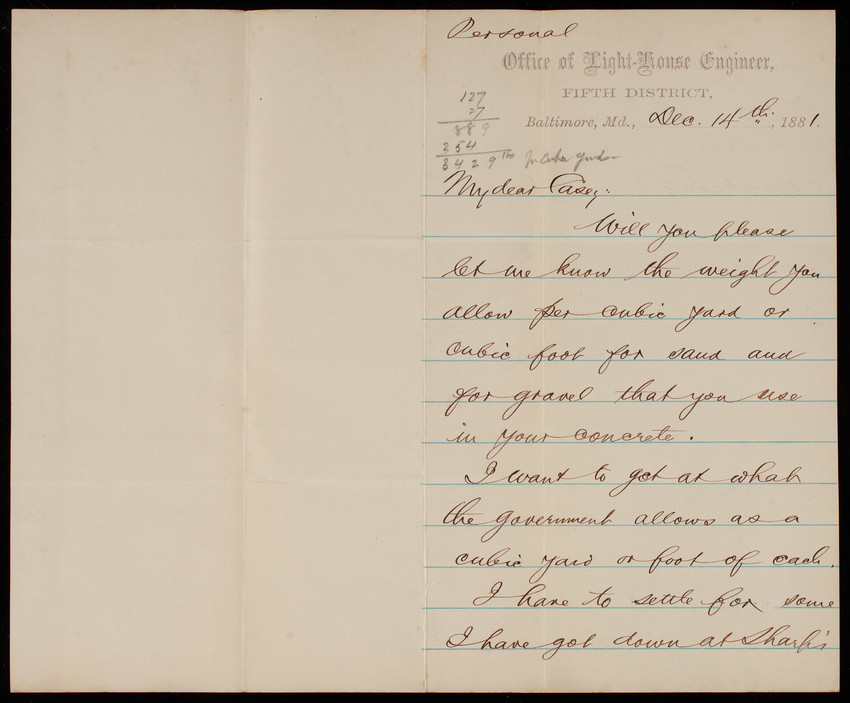 Personal
Office of Light-House Engineer,
FIFTH DISTRICT,
Baltimore, Md., Dec. 14th, 1881.
127
27
889
254
3429 lbs
My dear Casey:
Will you please
let me know the weight you
allow per cubic yard or
cubic foot for sand and
for gravel that you use
in your concrete.
I want to get at what
the government allows as a
cubic yard or foot of each.
I have to settle for some
I have got down at Sharp's